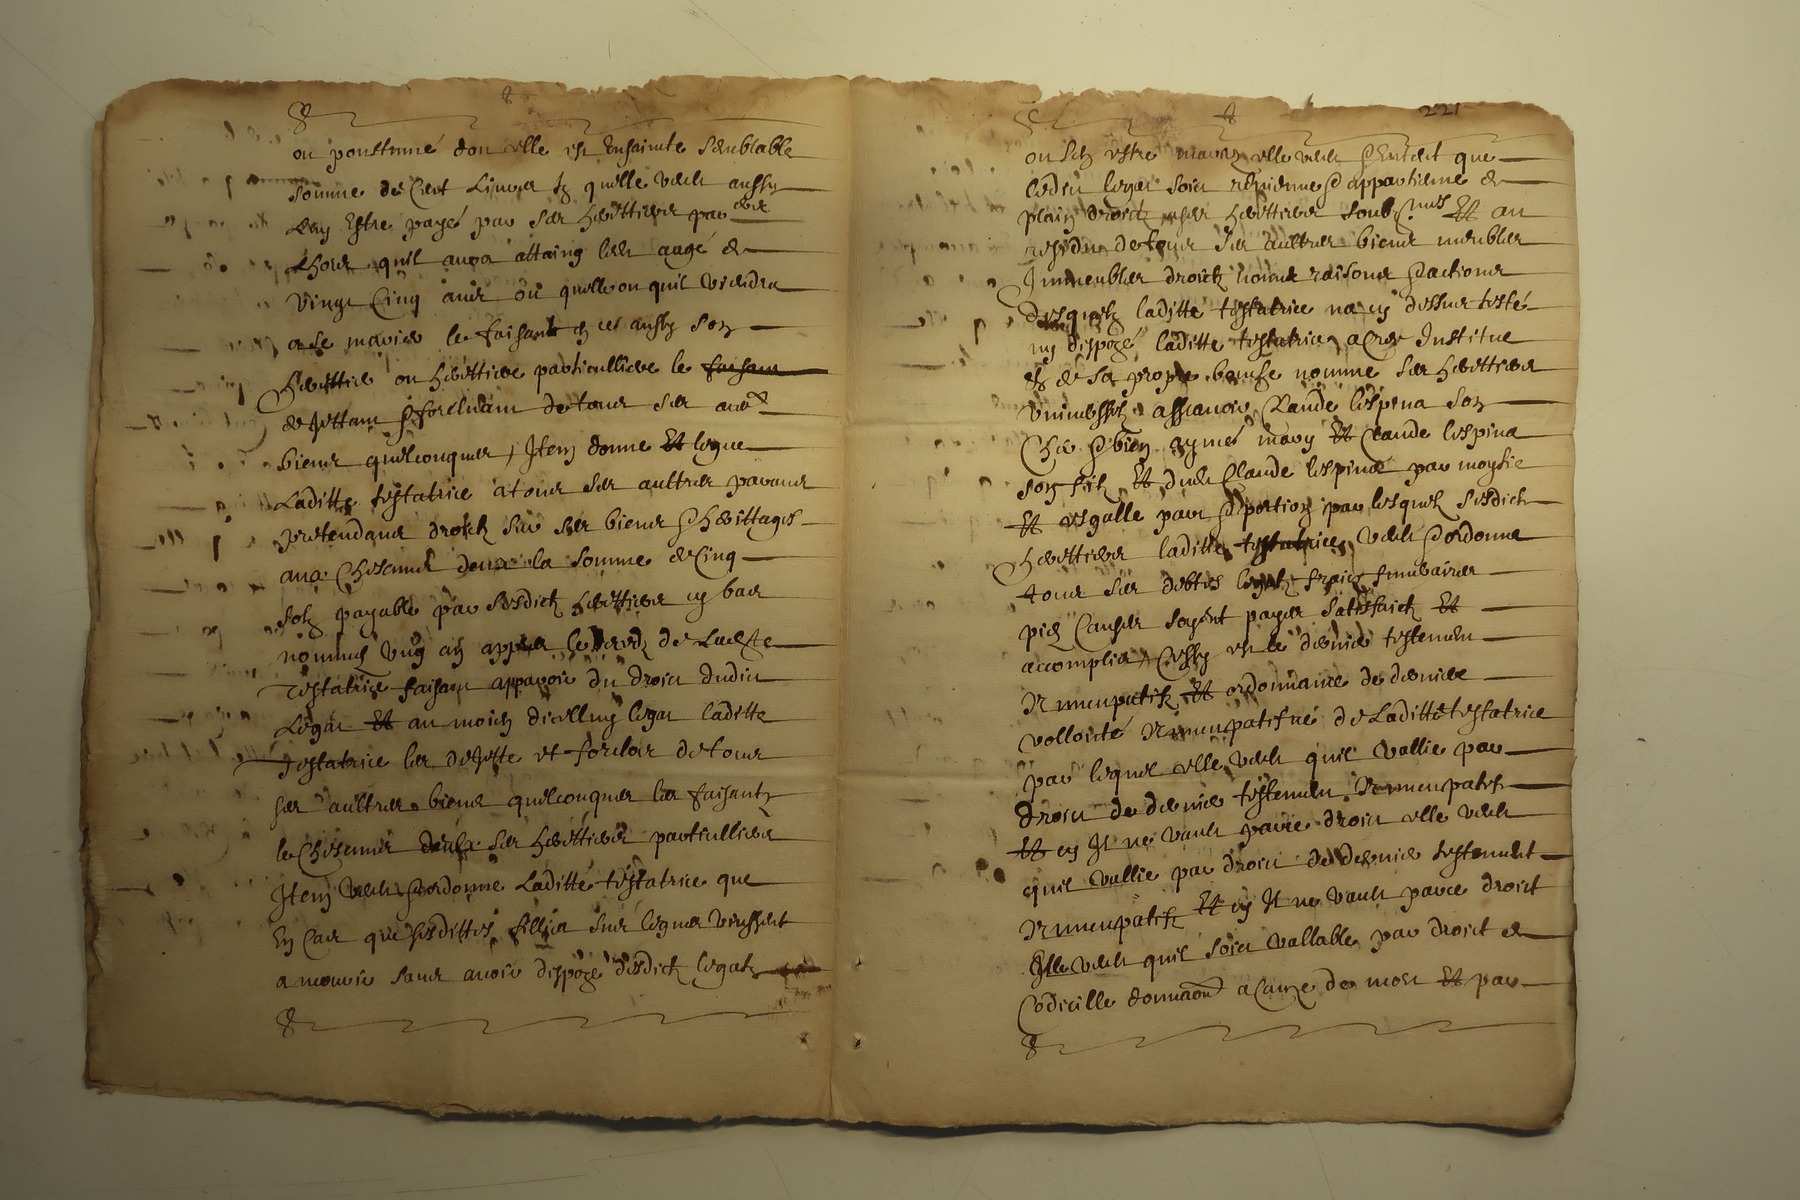 ou postumé don elle est ensainte semblable
somme de cent livres tz quelle veult aussy
luy estre payé par ses herittiers par
lhors quil aura attaing leer aagé de
vingt cinq ans ou quelleou quil viendra
a se marier le faisant en ce aussy son
herittier ou herittiere particulliere le faisant
dejettant & forcluant de tous ses autr
biens quelconques, Item donne et legue
laditte testatrice a tous ses aultres parans
pretendans droict sur ses biens & herittages
aux chescuns deux la somme de cinq
solz payable par sesdictz herittiers cy bas
nommes ung an appres le deced de laditte
Testatrice faisant apparoir du droict dudict
Legat et au moien dicelluy legat laditte
testatrice les dejette et forclos de tous
ses aultres biens quelconques les faisantz
le chescuns deulx ses herittiers particulliers
Item veult & ordonne Laditte testatrice que
en cas que sesdittes fillies sus legues vinssent
a mourir sans avoir dispozé desdictz legatz
221
ou sen estre maries elle veult & entent que
ledict legat soict revienne & appartienne de
plain droict a ses herittiers soub nes Et au
residu de tous ses aultres biens meubles
Immeubles droictz noms raisons & actions
desquelz laditte testatrice na cy dessus testé
ny dispozé laditte testatrice a cree Institue
et de sa propre bouche nomme ses herittiers
universselz assavoir Claude lespina son
cher & bien aymé mary Et Claude lespina
son filz Et dudt Claude lespina par moytie
Et esgalle part & portion par lesquelz sesdictz
herittiers laditte testatrice veult & ordonne
tous ses debtes legatz fraiz funeraires
piez causes soyent payes satisfaictz Et
accomplies, Cessy est le dernier testement
Nnuncupatif Et ordonnance de derniere
vollonté Nnuncupatifve de Laditte testatrice
par lequel elle veult quil vallie par
droict de dernier testement Nnuncupatif
Et cy Il ne vault parce droict elle veult
quil vallie par droict de dernier testement
Nnuncupatif Et cy Il ne vault parce droict
Elle veult quil soict vallable par droict de
Codicille donnaon a cauze de mort Et par